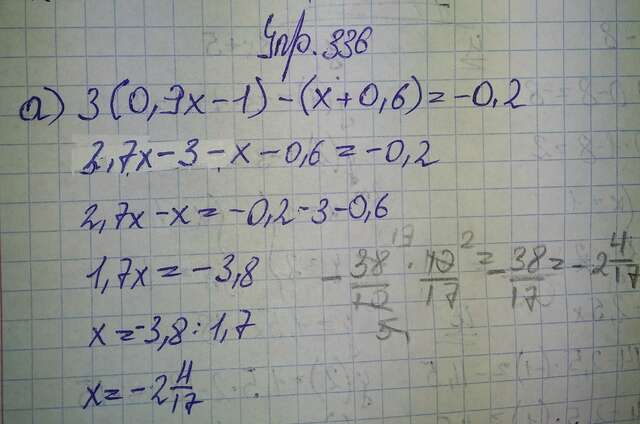 Упр. 336
а) 3(0,9x-1)-(x+0,6)=-0,2
2,7x-3-x-0,6=-0,2
2,7x-x=-0,2-3-0,6
1,7x=-3,8
-38/10 · 10/17 = -38/17 = -2 4/17
19 2
5
x=-3,8:1,7
x=-2 4/17